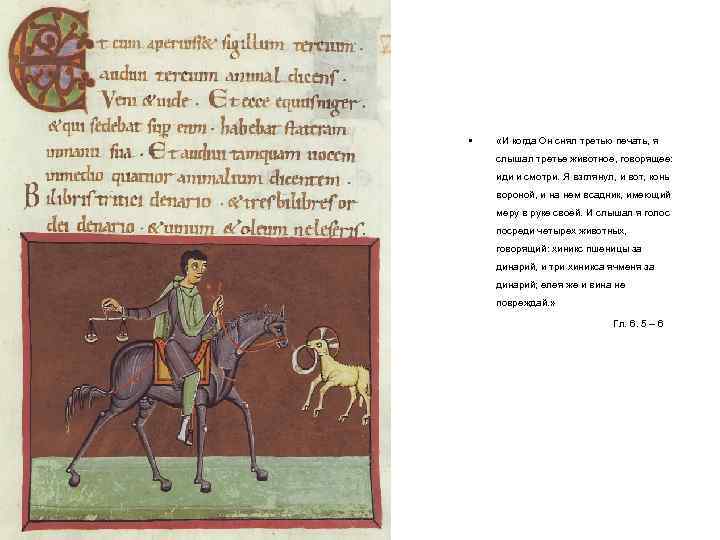 Et cum aperuisset sigillum tercium.
audivi tercium animal dicens.
Veni & vide. Et ecce equus niger.
& qui sedebat sup eum. habebat stateram
in manu sua. Et audivi tamquam vocem
in medio quatuor animalium dicentem.
Bilibris tritici denario. & tres bilibres or
dei denario. & vinum & oleum ne leseris.
• «И когда Он снял третью печать, я
слышал третье животное, говорящее:
иди и смотри. Я взглянул, и вот, конь
вороной, и на нем всадник, имеющий
меру в руке своей. И слышал я голос
посреди четырех животных,
говорящий: хиникс пшеницы за
динарий, и три хиникса ячменя за
динарий; елея же и вина не
повреждай.»
Гл. 6. 5 – 6